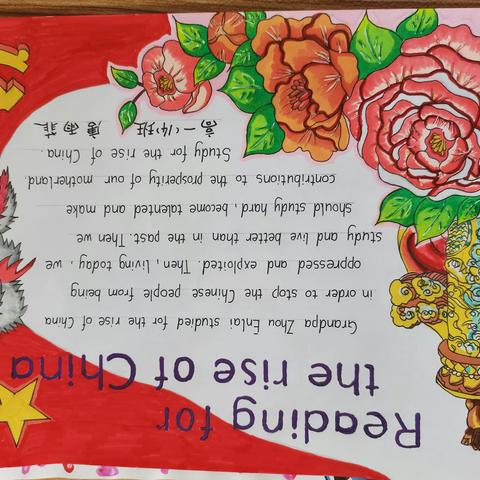 Reading for
the rise of China
Grandpa Zhou Enlai studied for the rise of China
in order to stop the Chinese people from being
oppressed and exploited. Then, living today, we
study and live better than in the past. Then we
should study hard, become talented and make
contributions to the prosperity of our motherland.
Study for the rise of China.
高一(14)班 唐雨菲